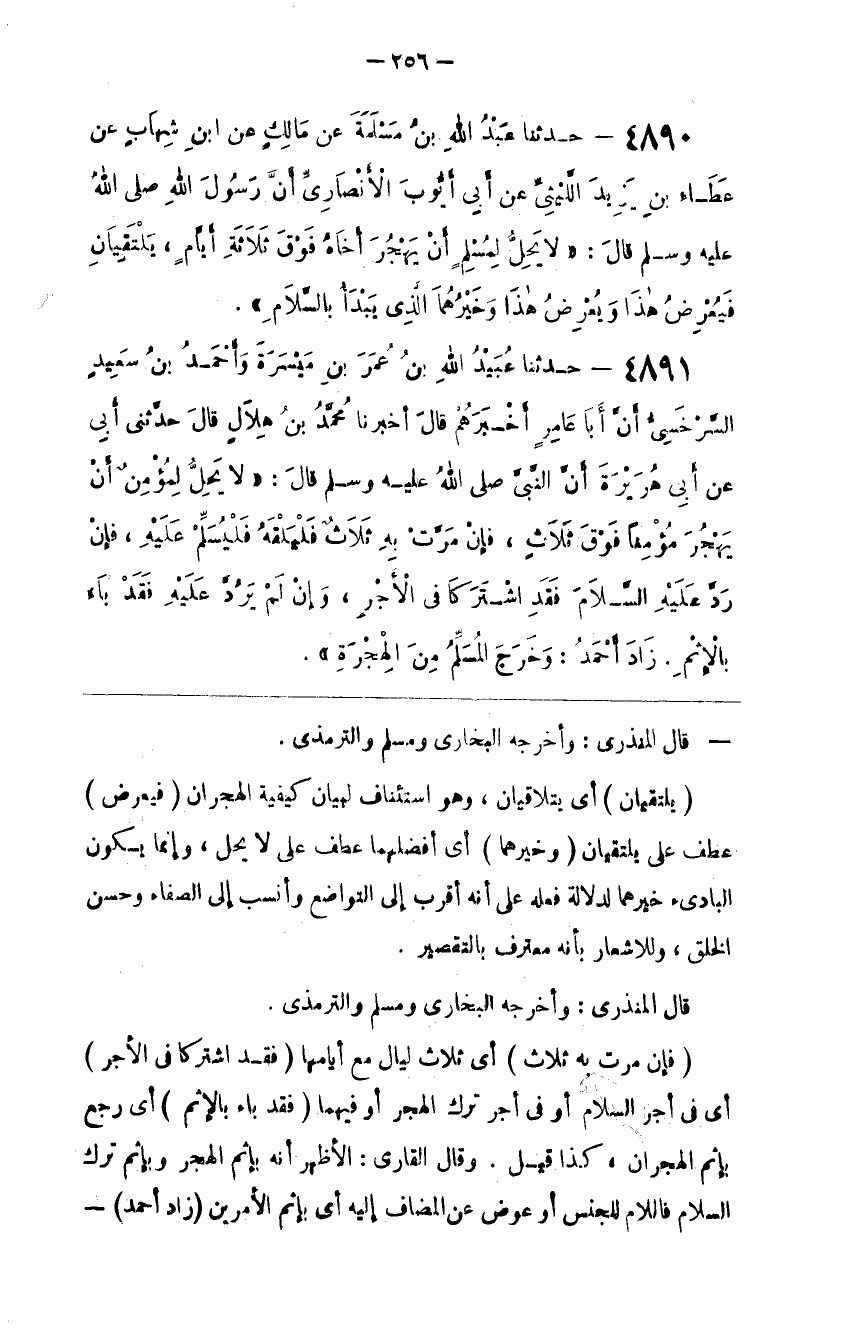 — ٢٥٦ —
٤٨٩٠ — حـدثنا عَبْدُ اللهِ بنُ مَسْلَمَةَ عن مَالِكٍ عن ابنِ شِهَابٍ عن
عَطَـاء بنِ يَزِيدَ اللَّيْثِيِّ عن أَبي أَيُّوبَ الْأَنْصَارِيِّ أَنَّ رَسُولَ اللهِ صلى اللهُ
عليه وسـلم قالَ : « لا يَحِلُّ لِمُسْلِمٍ أَنْ يَهْجُرَ أَخَاهُ فَوْقَ ثَلَاثَةِ أَيَّامٍ ، يَلْتَقِيَانِ
فَيُعْرِضُ هٰذَا وَيُعْرِضُ هٰذَا وَخَيْرُهُمَا الَّذِى يَبْدَأُ بالسَّلَامِ » .
٤٨٩١ — حـدثنا عُبَيْدُ اللهِ بنُ عُمَرَ بنِ مَيْسَرَةَ وَأَحْمَـدُ بنُ سَعِيدٍ
السَّرْخَسِيُّ أَنَّ أَبَا عَامِرٍ أَخْـبَرَهُمْ قالَ أخبرنا مُحمَّدُ بنُ هِلَالٍ قالَ حدَّثنى أَبي
عن أَبي هُرَيْرَةَ أَنَّ النَّبىَّ صلى اللهُ عليـه وسـلم قالَ : « لا يَحِلُّ لِمُؤْمِنٍ أَنْ
يَهْجُرَ مُؤْمِنًا فَوْقَ ثَلَاثٍ ، فإنْ مَرَّتْ بِهِ ثَلَاثٌ فَلْيَلْقَهُ فَلْيُسَلِّمْ عَلَيْهِ ، فإنْ
رَدَّ عَلَيْهِ السَّـلَامَ فَقَدِ اشْـتَرَكَا فى الْأَجْرِ ، وَإنْ لَمْ يَرُدَّ عَلَيْهِ فَقَدْ بَاءَ
بالْإِثْمِ . زَادَ أَحْمَدُ : وَخَرَجَ المُسَلِّمُ مِنَ الْهِجْرَةِ » .
— قال المنذرى : وأخرجه البخارى ومسلم والترمذى .
( يلتقيان ) أى يتلاقيان ، وهو استئناف لبيان كيفية الهجران ( فيعرض )
عطف على يلتقيان ( وخيرهما ) أى أفضلهما عطف على لا يحل ، وإنما يـكون
البادىء خيرهما لدلالة فعله على أنه أقرب إلى التواضع وأنسب إلى الصفاء وحسن
الخلق ، وللاشعار بأنه معترف بالتقصير .
قال المنذرى : وأخرجه البخارى ومسلم والترمذى .
( فإن مرت به ثلاث ) أى ثلاث ليال مع أيامها ( فقـد اشتركا فى الأجر )
أى فى أجر السلام أو فى أجر ترك الهجر أو فيهما ( فقد باء بالإثم ) أى رجع
بإثم الهجران ، كـذا قيـل . وقال القارى : الأظهر أنه بإثم الهجر وبإثم ترك
السلام فاللام للجنس أو عوض عن المضاف إليه أى بإثم الأمرين (زاد أحمد) —